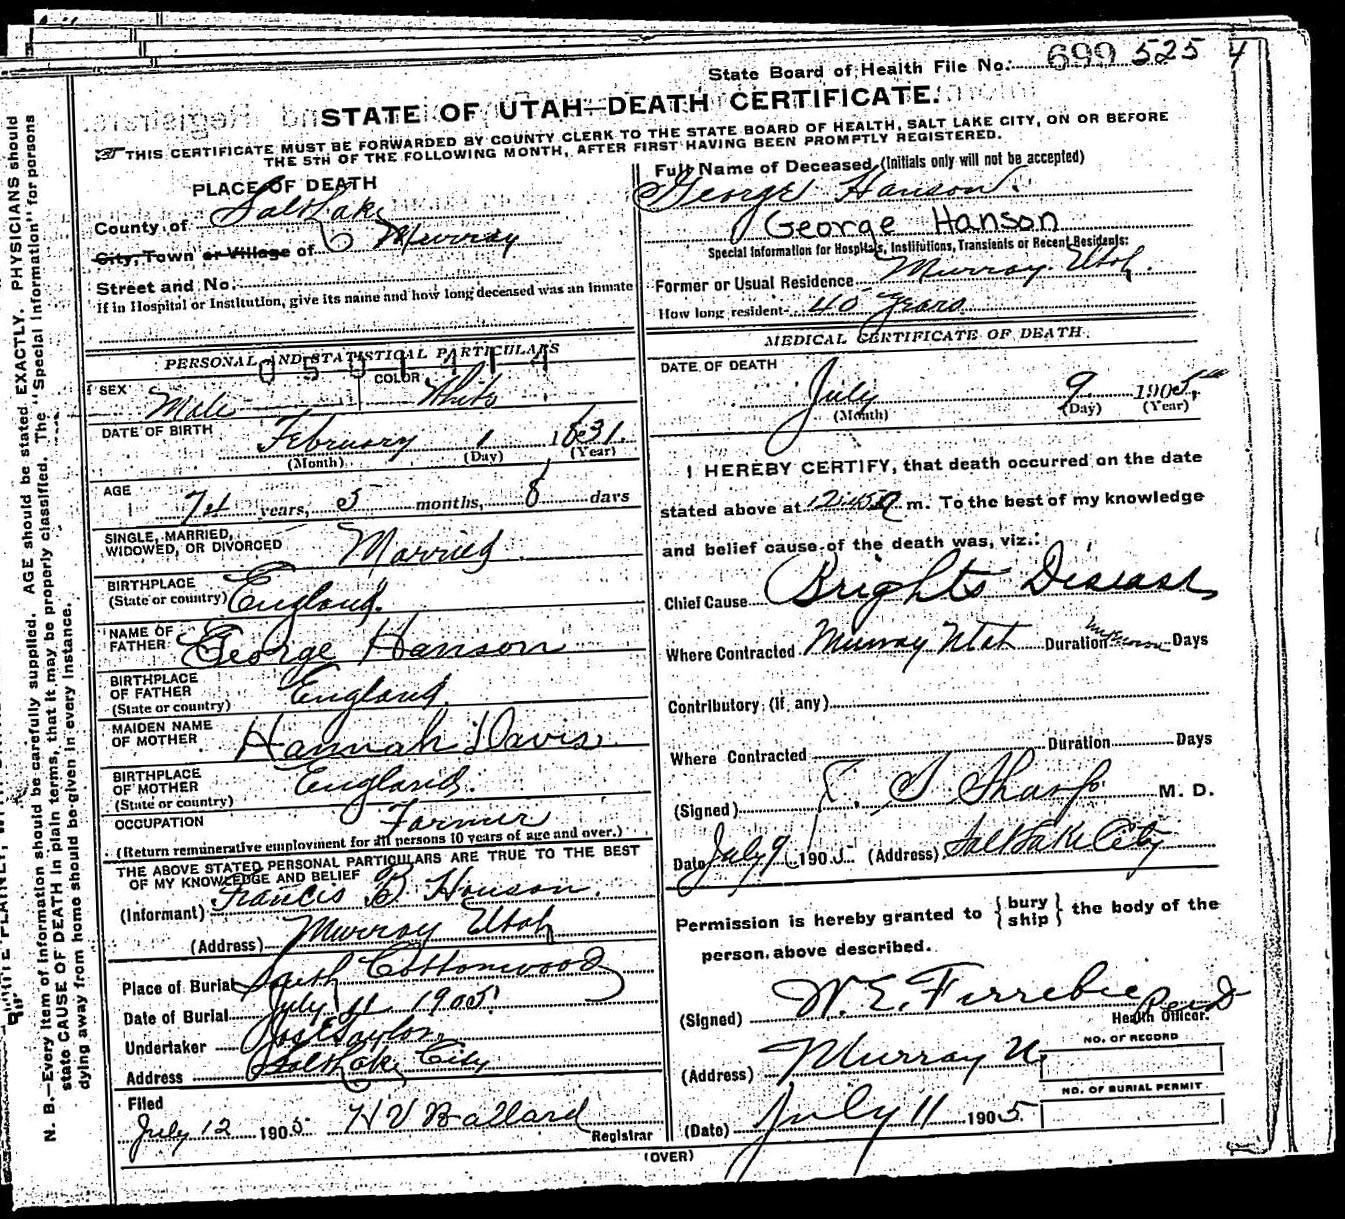 State Board of Health File No. 699 525 4
STATE OF UTAH—DEATH CERTIFICATE.
THIS CERTIFICATE MUST BE FORWARDED BY COUNTY CLERK TO THE STATE BOARD OF HEALTH, SALT LAKE CITY, ON OR BEFORE
THE 5TH OF THE FOLLOWING MONTH, AFTER FIRST HAVING BEEN PROMPTLY REGISTERED.
PLACE OF DEATH
County of Salt Lake
City, Town or Village of Murray
Street and No.
If in Hospital or Institution, give its name and how long deceased was an inmate
Full Name of Deceased (Initials only will not be accepted)
George Hanson.
George Hanson
Special Information for Hospitals, Institutions, Transients or Recent Residents:
Former or Usual Residence Murray Utah.
How long resident 40 years
PERSONAL AND STATISTICAL PARTICULARS
0501414
SEX Male COLOR White
DATE OF BIRTH February 1 1831.
(Month) (Day) (Year)
AGE 74 years, 5 months, 8 days
SINGLE, MARRIED,
WIDOWED, OR DIVORCED Married
BIRTHPLACE
(State or country) England.
NAME OF
FATHER George Hanson
BIRTHPLACE
OF FATHER England.
(State or country)
MAIDEN NAME
OF MOTHER Hannah Davis.
BIRTHPLACE
OF MOTHER England.
(State or country)
OCCUPATION Farmer
(Return remunerative employment for all persons 10 years of age and over.)
THE ABOVE STATED PERSONAL PARTICULARS ARE TRUE TO THE BEST
OF MY KNOWLEDGE AND BELIEF
(Informant) Francis B Hanson.
(Address) Murray Utah
Place of Burial South Cottonwood
Date of Burial July 11 1905
Undertaker Jos E Taylor
Address Salt Lake City
Filed
July 12 1905 H V Ballard Registrar
MEDICAL CERTIFICATE OF DEATH
DATE OF DEATH
July 9 1905
(Month) (Day) (Year)
I HEREBY CERTIFY, that death occurred on the date
stated above at 12:45 m. To the best of my knowledge
and belief cause of the death was, viz.:
Chief Cause Brights Disease
Where Contracted Murray Utah Duration unknown Days
Contributory (If any)
Where Contracted Duration Days
(Signed) S Sharp M. D.
Date July 9 1905 (Address) Salt Lake City
Permission is hereby granted to {bury
ship} the body of the
person above described.
(Signed) W. E. Firrebie
Health Officer.
(Address) Murray U.
NO. OF RECORD
NO. OF BURIAL PERMIT
(Date) July 11 1905
(OVER)
N. B.—Every item of information should be carefully supplied. AGE should be stated EXACTLY. PHYSICIANS should
state CAUSE OF DEATH in plain terms, that it may be properly classified. The "Special Information" for persons
dying away from home should be given in every instance.